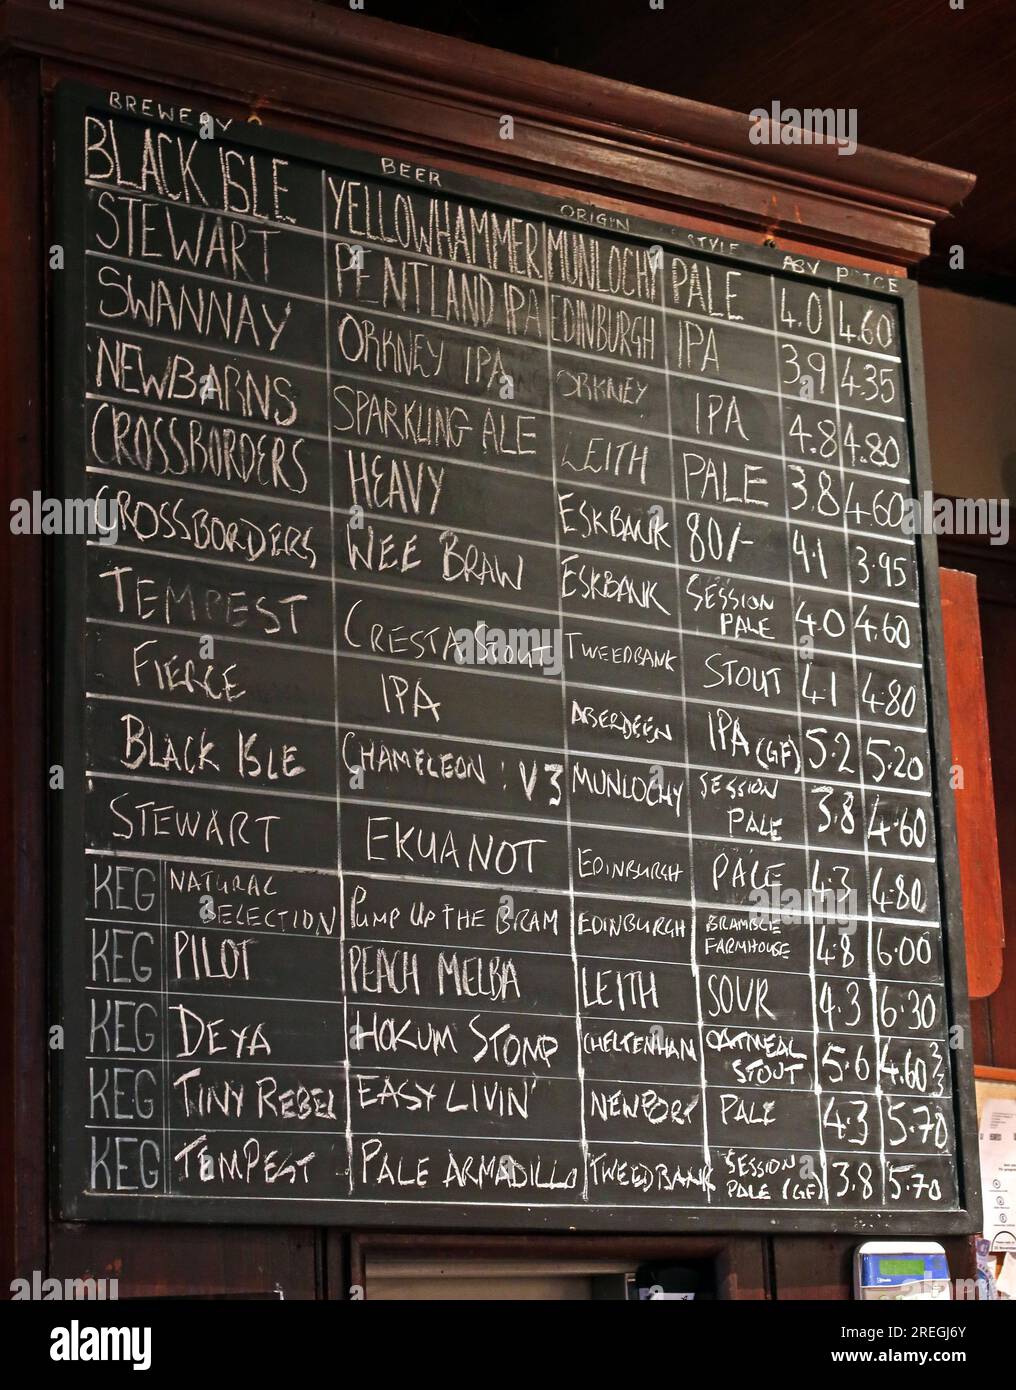 BREWERY BEER ORIGIN STYLE ABV PRICE
BLACK ISLE YELLOWHAMMER MUNLOCHY PALE 4.0 4.60
STEWART PENTLAND IPA EDINBURGH IPA 3.9 4.35
SWANNAY ORKNEY IPA ORKNEY IPA 4.8 4.80
NEWBARNS SPARKLING ALE LEITH PALE 3.8 4.60
CROSSBORDERS HEAVY ESKBANK 80/- 4.1 3.95
CROSSBORDERS WEE BRAW ESKBANK SESSION PALE 4.0 4.60
TEMPEST CRESTA STOUT TWEEDBANK STOUT 4.1 4.80
FIERCE IPA ABERDEEN IPA (GF) 5.2 5.20
BLACK ISLE CHAMELEON: V3 MUNLOCHY SESSION PALE 3.8 4.60
STEWART EKUANOT EDINBURGH PALE 4.3 4.80
KEG NATURAL SELECTION PUMP UP THE BRAM EDINBURGH BRAMBLE FARMHOUSE 4.8 6.00
KEG PILOT PEACH MELBA LEITH SOUR 4.3 6.30
KEG DEYA HOKUM STOMP CHELTENHAM OATMEAL STOUT 5.6 4.60 2/3
KEG TINY REBEL EASY LIVIN' NEWPORT PALE 4.3 5.70
KEG TEMPEST PALE ARMADILLO TWEEDBANK SESSION PALE (GF) 3.8 5.70
alamy
Image ID: 2REGJ6Y
www.alamy.com